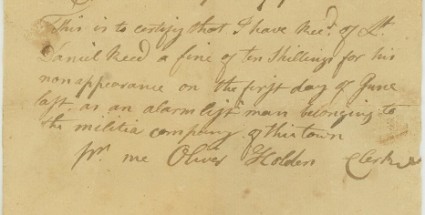 This is to certify that I have Recd. of Lt.
Daniel Reed a fine of ten Shillings for his
nonappearance on the first day of June
last as an alarm list man belonging to
the militia company of this town
pr. me Oliver Holden Clerk